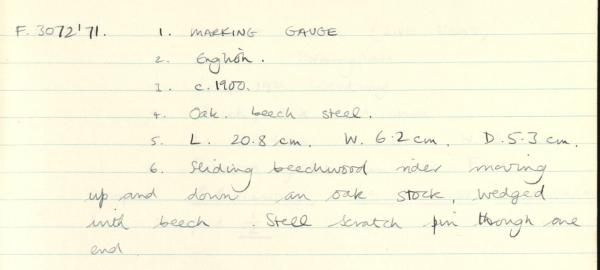 F. 3072'71. 1. MARKING GAUGE
2. English.
3. c. 1900.
4. Oak. beech steel.
5. L. 20.8 cm. W. 6.2 cm. D. 5.3 cm.
6. Sliding beechwood rider moving
up and down an oak stock, wedged
with beech. Steel scratch pin through one
end